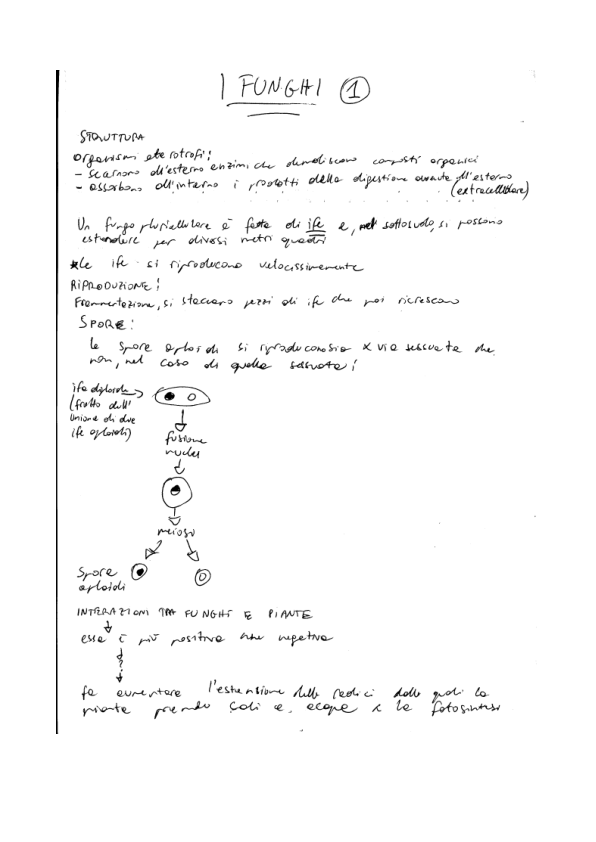 I FUNGHI 1
STRUTTURA
organismi eterotrofi:
- scarnano all'esterno enzimi, che demoliscano composti organici
- assorbono all'interno i prodotti della digestione avvenuta all'esterno
(extracellulare)
Un fungo pluricellulare è fatto di ife e, nel sottosuolo, si possono
estendere per diversi metri quadri
*le ife si riproducono velocissimamente
RIPRODUZIONE:
Frammentazione, si staccano pezzi di ife che poi ricrescano
SPORE:
le spore aploidi si riproducono sia x via sessuata che
non, nel caso di quella sessuata:
ifa diploide
(frutto dell'
unione di due
ife aploidi)
fusione
nuclei
meiosi
Spore
aploidi
INTERAZIONI TRA FUNGHI E PIANTE
essa è più positiva che negativa
?
fa aumentare l'estensione delle radici dalle quali la
pianta prende sali e acqua x la fotosintesi